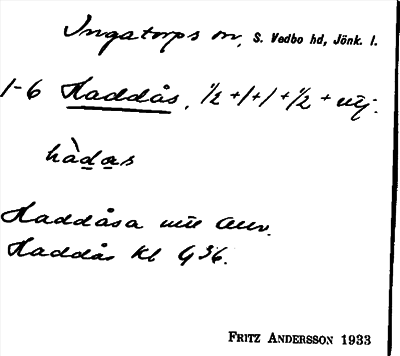 Ingatorps sn, S. Vedbo hd, Jönk. l.
1-6 Haddås, 1/2 +1+1+1/2 + utj.
hàdas
Haddåsa
Haddås Kl G 36.
FRITZ ANDERSSON 1933